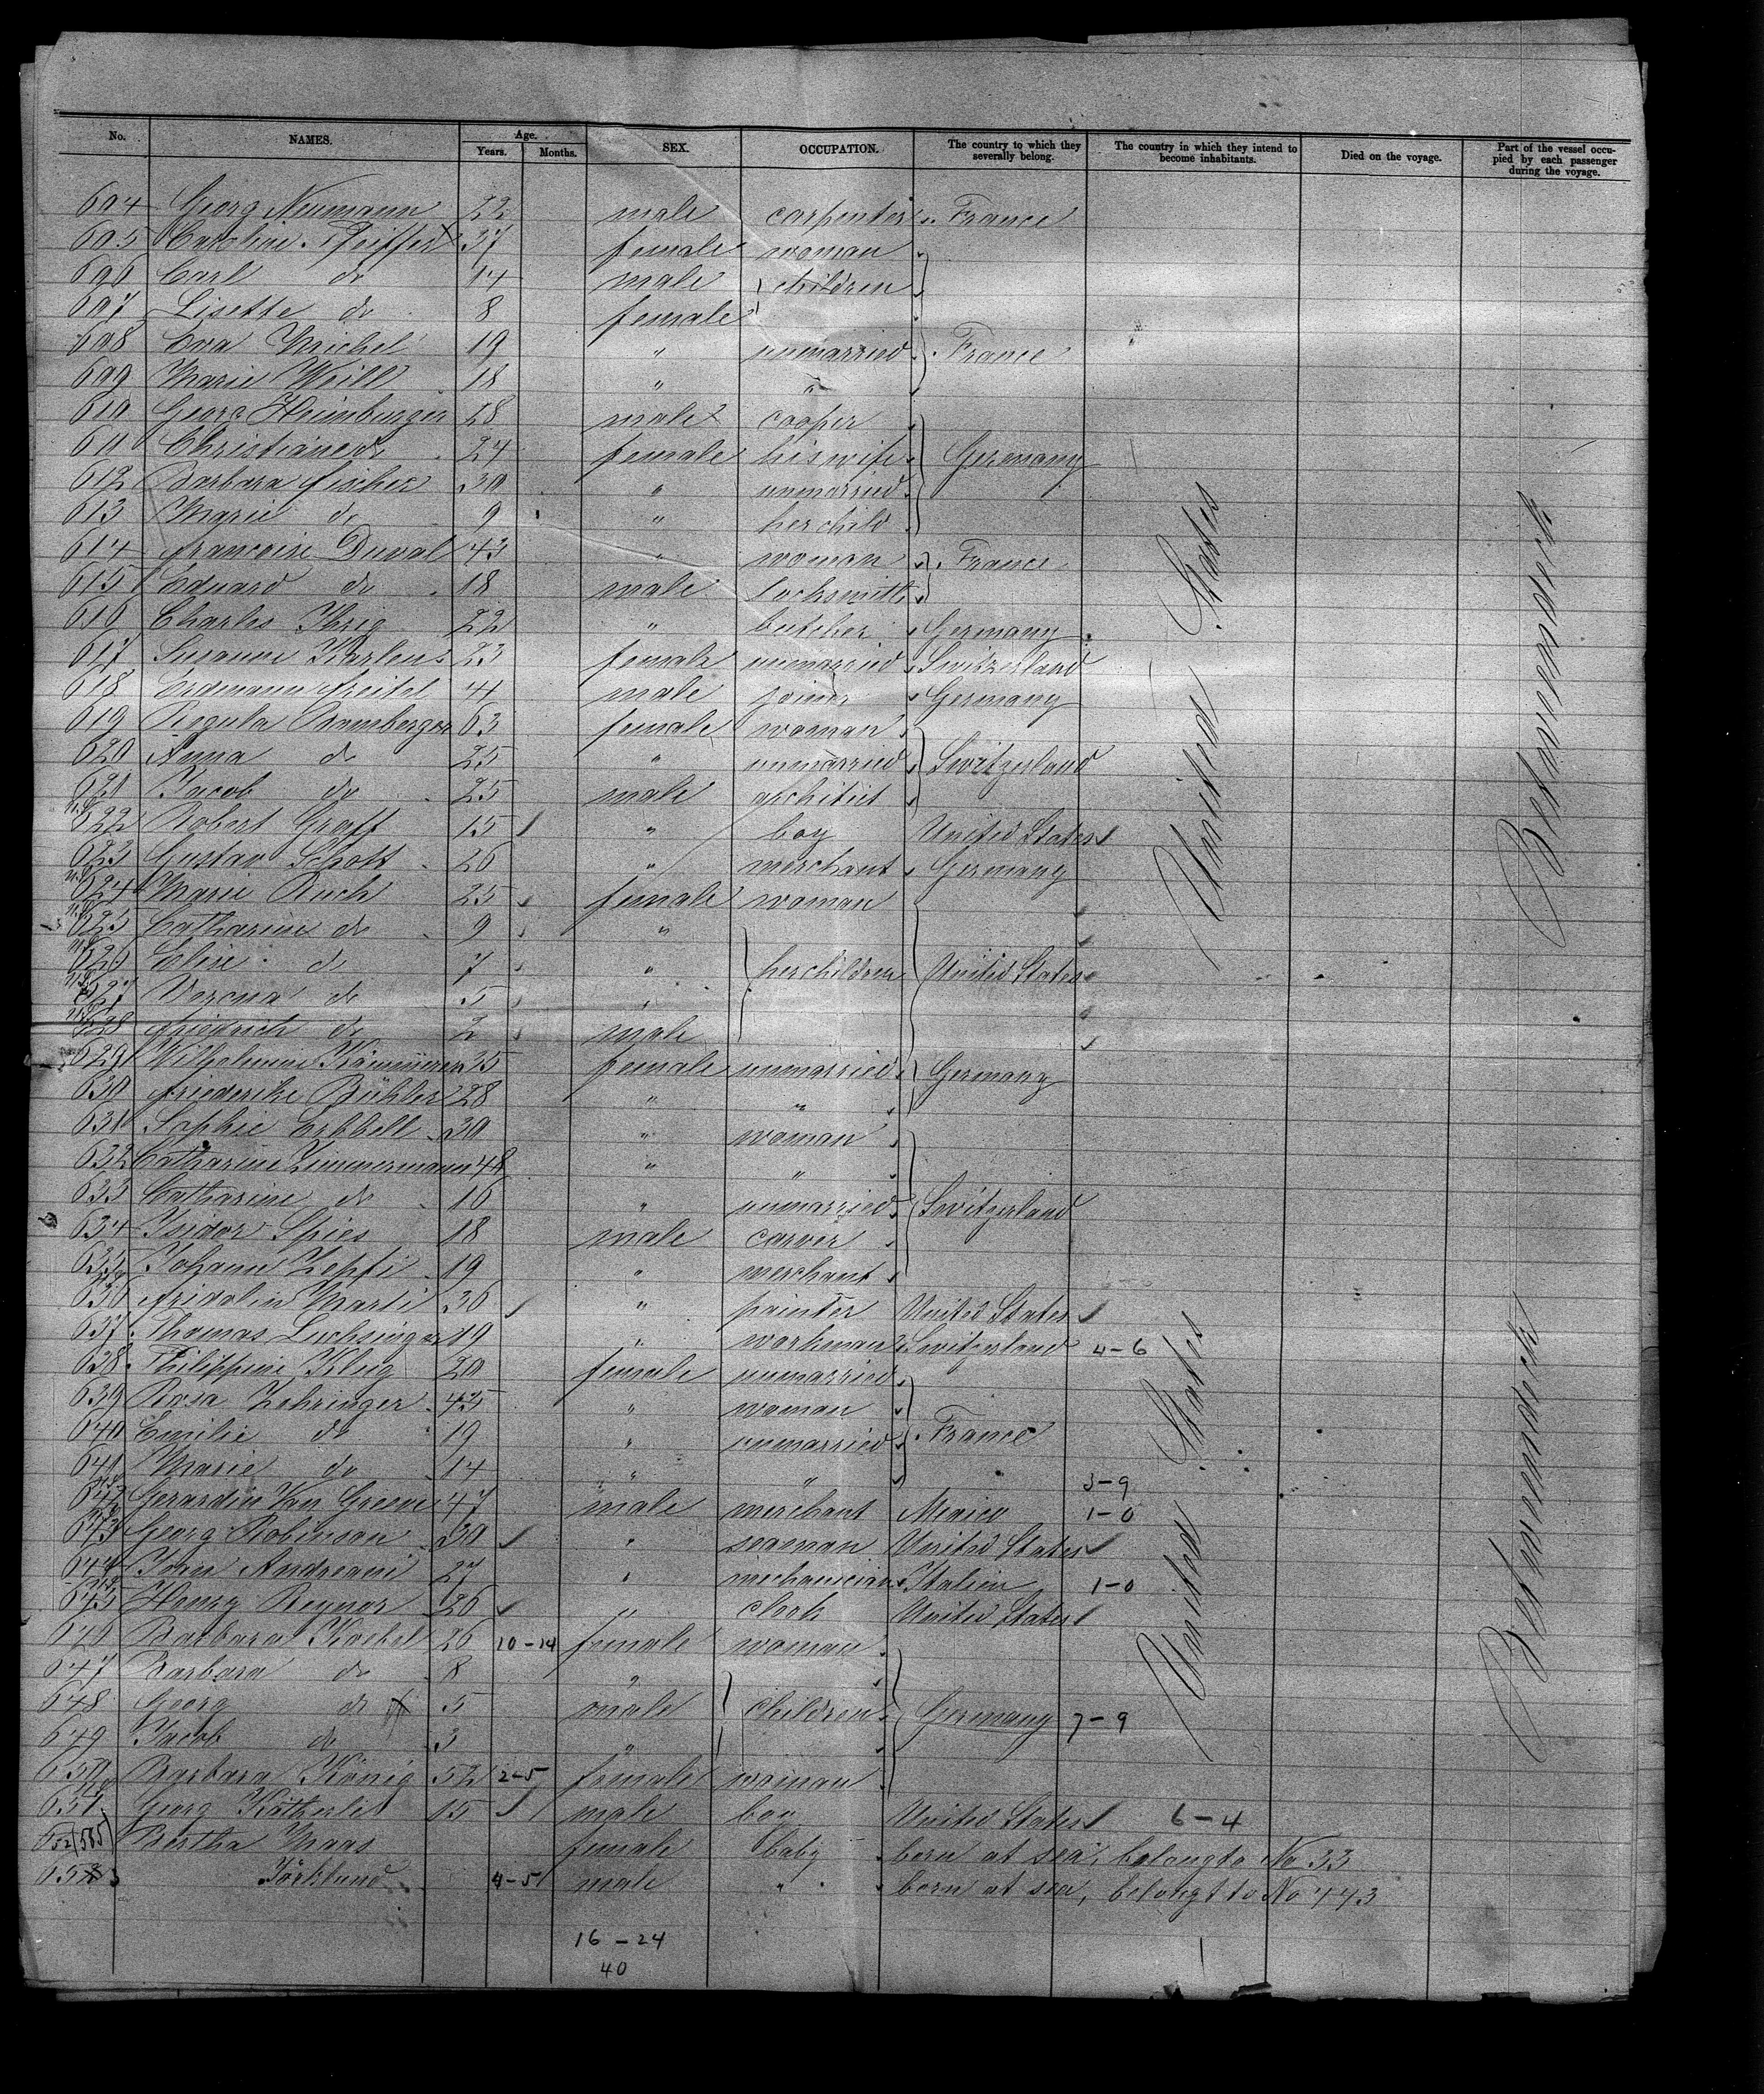 No. NAMES. Age. Years. Months. SEX. OCCUPATION. The country to which they severally belong. The country in which they intend to become inhabitants. Died on the voyage. Part of the vessel occupied by each passenger during the voyage.
604 Georg Neumann 22 male carpenter France
605 Caroline Pfeiffer x 37 female woman
606 Carl do 14 male children
607 Lisette do 8 female
608 Eva Michel 19 " unmarried France
609 Marie Weill 18 " "
610 Georg Heimburger 28 male cooper
611 Christiane do 24 female his wife Germany
612 Barbara Fischer 30 " unmarried
613 Marie do 9 " her child
614 Francoise Duval 43 " woman France
615 Eduard do 18 male locksmith
616 Charles Ihrig 22 " butcher Germany
617 Susanne Karlen 23 female unmarried Switzerland
618 Erdmann Freitel 41 male joiner Germany
619 Regula Bamberger 63 female woman
620 Anna do 25 " unmarried Switzerland
621 Jacob do 25 male architect
622 Robert Graff 15 " boy United States
623 Gustav Schott 26 " merchant Germany
624 Marie Ruch 25 female woman
625 Catharine do 9 "
626 Elise do 7 " her children United States
627 Verena do 5 "
628 Friedrich do 2 male
629 Wilhelmine 35 female unmarried Germany
630 Friederike Bühler 28 " "
631 Sophie 30 " woman
632 Catharine Zimmermann 48 " "
633 Catharine do 16 " unmarried Switzerland
634 Isidor Spies 18 male carver
635 Johann Zopfi 19 " merchant
636 Fridolin Marti 36 " painter United States
637 Thomas Luchsinger 19 " workman Switzerland 4-6
638 Philippine Kleig 20 female unmarried
639 Rosa Zehringer 45 " woman
640 Emilie do 19 " unmarried France
641 Marie do 14 " " 3-9
642 Gerardin Van 47 male merchant Mexico 1-0
643 Georg Robinson 30 " seaman United States
644 John Andreani 27 " mechanician Italien 1-0
645 Henry Regnor 26 " clerk United States
646 Barbara Koebel 26 10-14 female woman
647 Barbara do 8 "
648 Georg do 5 male children Germany 7-9
649 Jacob do 3 "
650 Barbara König 52 2-5 female woman
651 Georg 15 male boy United States 6-4
652 (585) Bertha Maas female baby born at sea, belong to No 33
653 4-5 male " born at sea, belongt to No 443
16-24
40
United States
United States
Betweendeck
Betweendeck